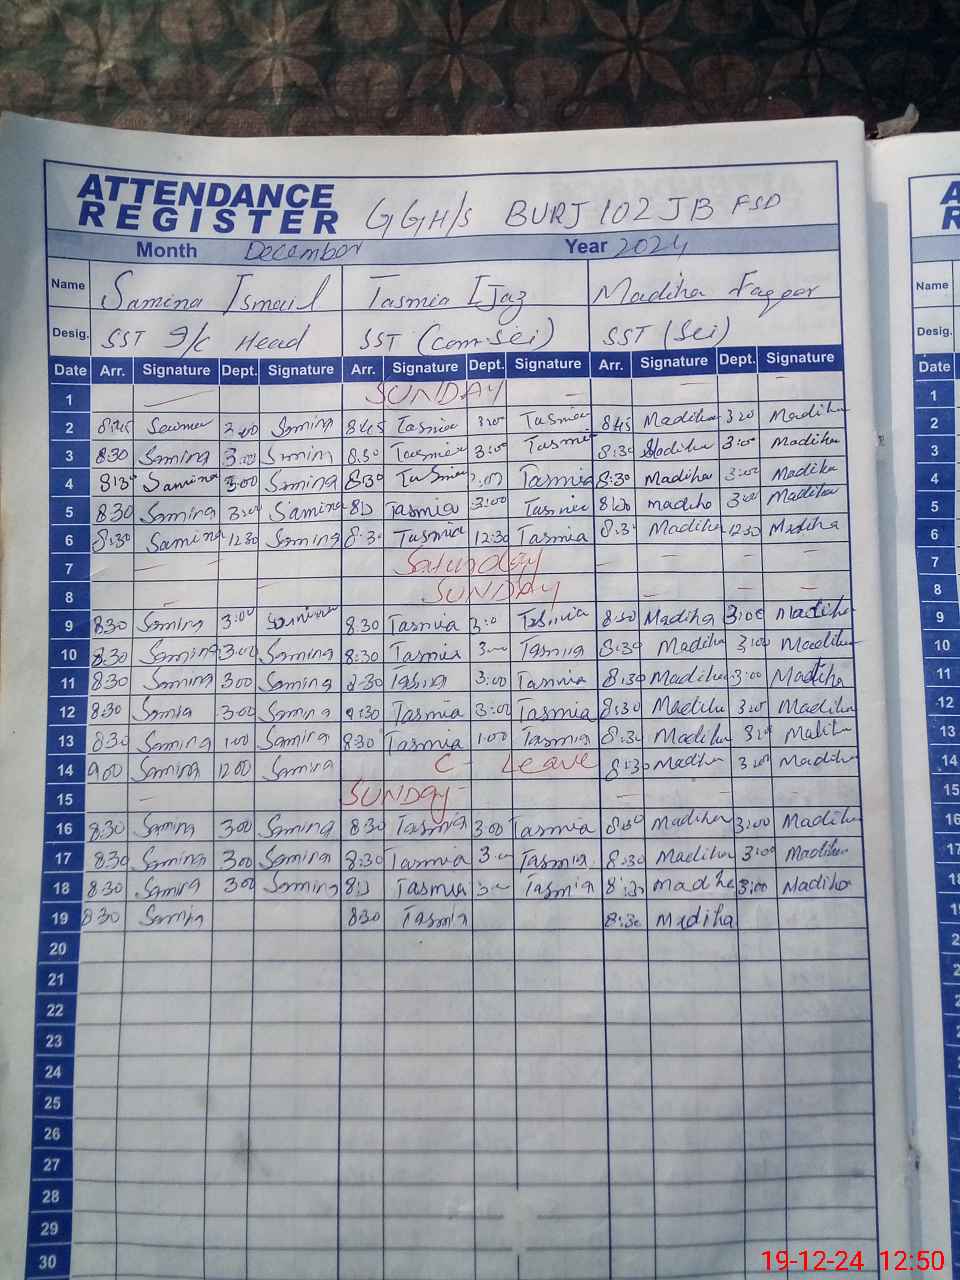 ATTENDANCE
REGISTER GGH/S BURJ 102 JB FSD
Month December Year 2024
Name Samina Ismail Tasmia Ijaz Madiha
Desig. SST I/C Head SST (com Sci) SST (Sci)
Date Arr. Signature Dept. Signature Arr. Signature Dept. Signature Arr. Signature Dept. Signature
1 SUNDAY
2 8:45 3:00 Samina 8:45 Tasmia 3:00 Tasmia 8:45 Madiha 3:20 Madiha
3 830 Samina 3:00 Samina 8:30 Tasmia 3:00 Tasmia 8:30 Madiha 3:00 Madiha
4 8:30 Samina 3:00 Samina 8:30 Tasmia 3:00 Tasmia 8:30 Madiha 3:00 Madiha
5 830 Samina 3:00 Samina Tasmia 3:00 Tasmia 8:30 madiha 3:00 Madiha
6 8:30 Samina 1230 Samina 8:30 Tasmia 12:30 Tasmia 8:30 Madiha 1230 Madiha
7 Saturday
8 SUNDAY
9 830 Samina 3:00 8:30 Tasmia 3:00 Tasmia 8:30 Madiha 3:00 Madiha
10 8:30 Samina 3:00 Samina 8:30 Tasmia 3:00 Tasmia 8:30 Madiha 3:00 Madiha
11 830 Samina 300 Samina 8:30 Tasmia 3:00 Tasmia 8:30 Madiha 3:00 Madiha
12 8:30 Samina 3:00 Samina 8:30 Tasmia 3:00 Tasmia 8:30 Madiha 3:00 Madiha
13 830 Samina 1:00 Samina 830 Tasmia 1:00 Tasmia 8:30 Madiha Madiha
14 9:00 Samina 1200 Samina C- Leave 8:30 Madiha 3:00 Madiha
15 SUNDAY
16 8:30 Samina 300 Samina 8:30 Tasmia 3:00 Tasmia 8:30 Madiha 3:00 Madiha
17 8:30 Samina 300 Samina 8:30 Tasmia 3:00 Tasmia 8:30 Madiha 3:00 Madiha
18 8:30 Samina 300 Samina Tasmia 3:00 Tasmia 8:30 madiha 3:00 Madiha
19 830 Samina 830 Tasmia 8:30 Madiha
20
21
22
23
24
25
26
27
28
29
30
Name
Desig.
Date
1
2
3
4
5
6
7
8
9
10
11
12
13
14
15
16
17
18
19-12-24 12:50